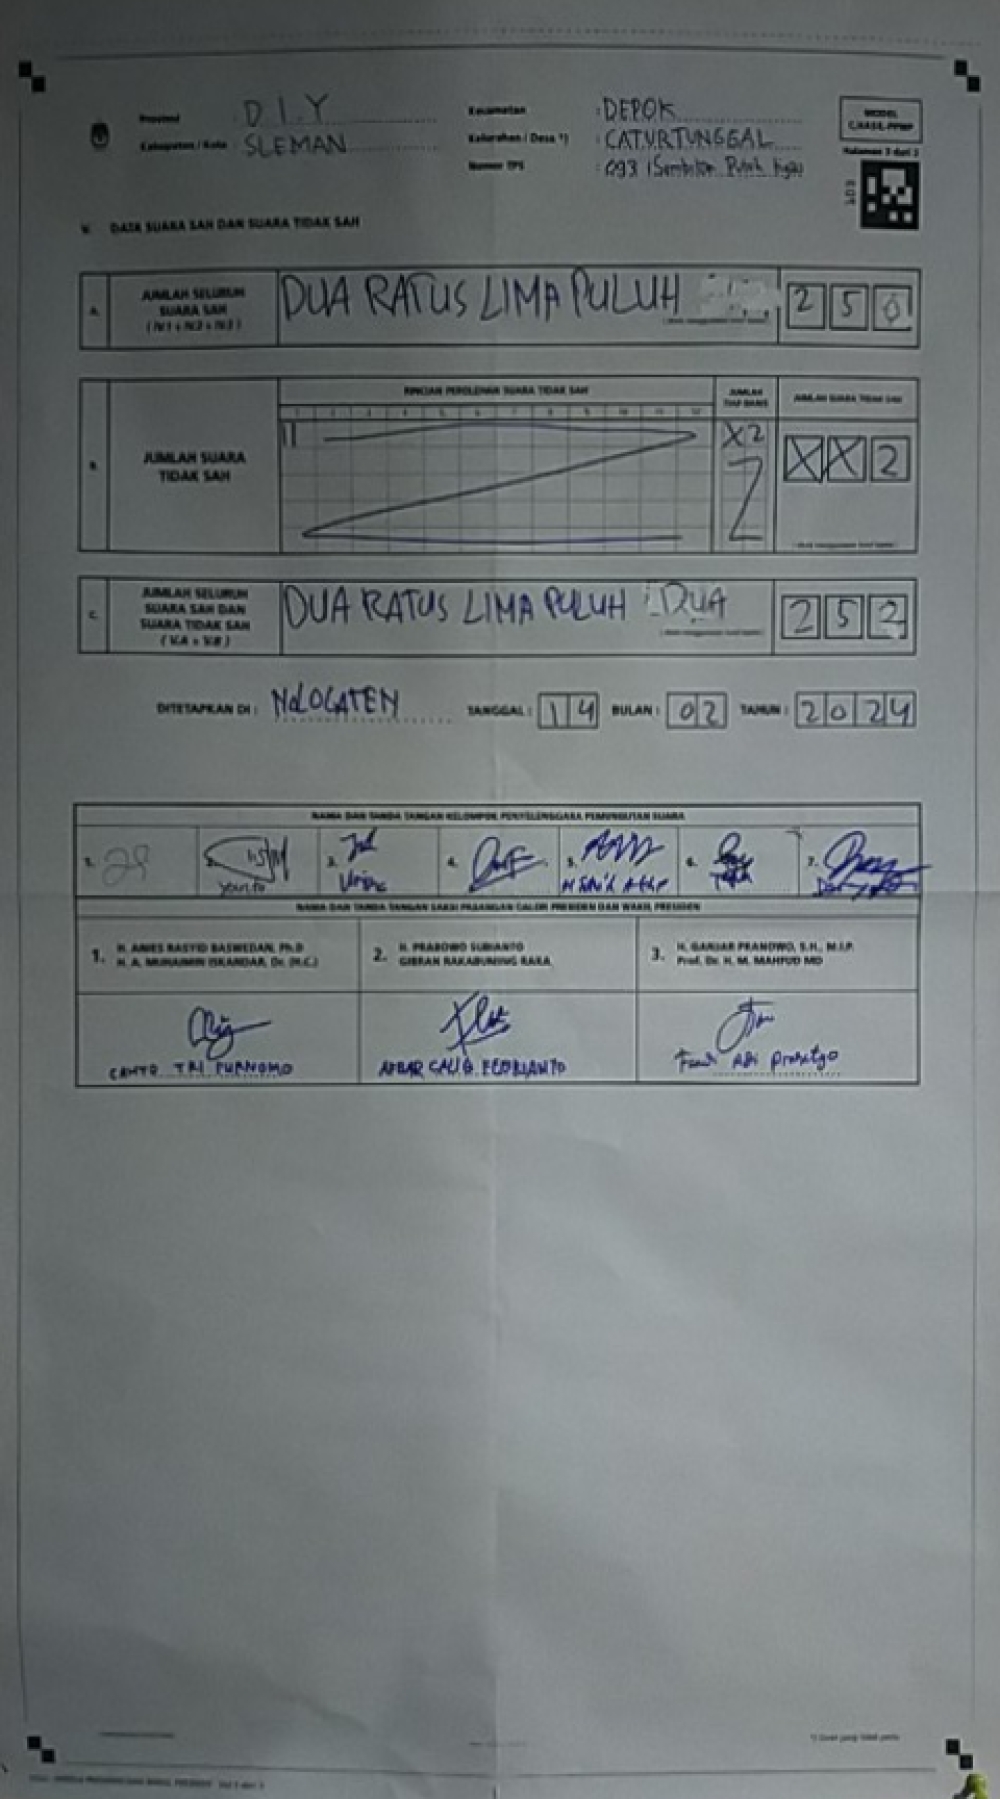 Provinsi : D.I.Y
Kabupaten / Kota : SLEMAN
Kecamatan : DEPOK
Kelurahan / Desa *) : CATURTUNGGAL
Nomor TPS : 093 (Sembilan Puluh tiga)
MODEL
C.HASIL-PPWP
Halaman 3 dari 3
V. DATA SUARA SAH DAN SUARA TIDAK SAH
A. JUMLAH SELURUH
SUARA SAH
(IV.1 + IV.2 + IV.3)
DUA RATUS LIMA PULUH
2 5 0
B. JUMLAH SUARA
TIDAK SAH
RINCIAN PEROLEHAN SUARA TIDAK SAH
1 2 3 4 5 6 7 8 9 10 11 12
JUMLAH
TIAP BARIS
JUMLAH SUARA TIDAK SAH
II
X2
X X 2
C. JUMLAH SELURUH
SUARA SAH DAN
SUARA TIDAK SAH
(V.A + V.B)
DUA RATUS LIMA PULUH DUA
2 5 2
DITETAPKAN DI : NOLOGATEN TANGGAL : 14 BULAN : 02 TAHUN : 2024
NAMA DAN TANDA TANGAN KELOMPOK PENYELENGGARA PEMUNGUTAN SUARA
1. 2. 3. 4. 5. 6. 7.
NAMA DAN TANDA TANGAN SAKSI PASANGAN CALON PRESIDEN DAN WAKIL PRESIDEN
1. H. ANIES RASYID BASWEDAN, Ph.D
H. A. MUHAIMIN ISKANDAR, Dr. (H.C.)
2. H. PRABOWO SUBIANTO
GIBRAN RAKABUMING RAKA
3. H. GANJAR PRANOWO, S.H., M.I.P.
Prof. Dr. H. M. MAHFUD MD
CAHYO TRI PURNOMO
AKBAR CALIQ FEBRIANTO
Adi Prasetyo
*) Coret yang tidak perlu